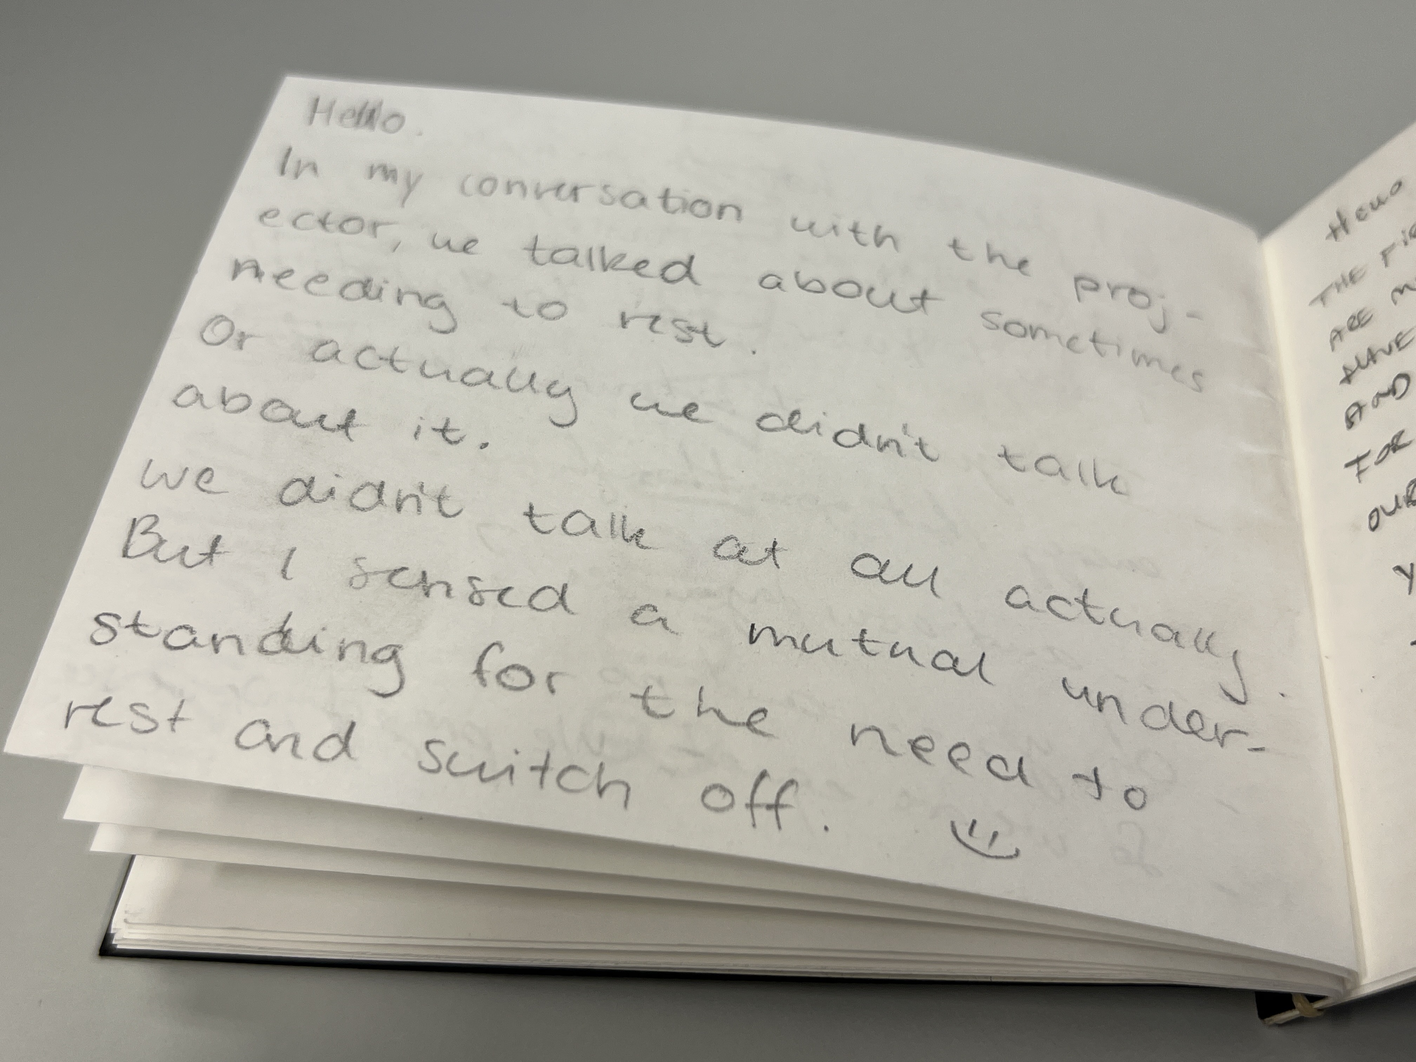 Hello.
In my conversation with the proj-
ector, we talked about sometimes
needing to rest.
Or actually we didn't talk
about it.
we didn't talk at all actually.
But I sensed a mutual under-
standing for the need to
rest and switch off.
Hello
THE
ARE
HAVE
AND
FOR
OUR